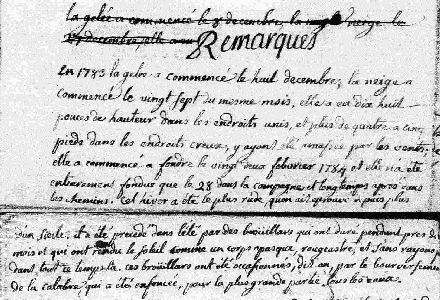 la gelée a commencé le 8 decembre, la neige le
27 decembre elle a eu
Remarques
En 1783 la gelee a commencé le huit decembre; la neige a
commencé le vingt sept du mesme mois, elle a eu dix huit
pouces de hauteur dans les endroits unis, et plus de quatre a cinq
pieds dans les endroits creux, y ayant été amassée par les vents;
elle a commencé a fondre le vingt deux febvrier 1784 et elle n'a été
entierement fondue que le 28 dans la campagne et longtemps apres dans
les chemins. Cet hiver a été le plus rude qu'on ait eprouvé depuis plus
d'un siecle; il a été precedé dans l'été par des broüillars qui ont duré pendant pres de
mois et qui ont rendu le soleil comme un corps opaque, rougeastre, et sans rayons
dans tout ce temps la. ces broüillars ont été occasionnés, dit on, par le bouversement
de la calabre, qui a été enfoncée, pour la plus grande partie, sous les eaux.